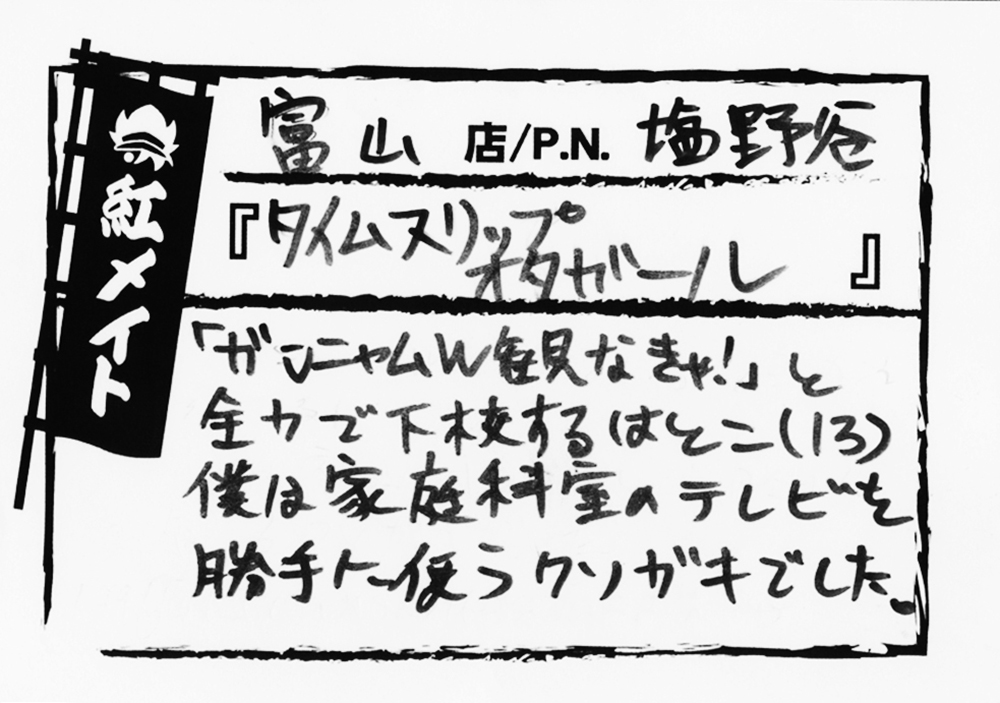 紅メイト
富山 店/P.N. 塩野谷
『タイムスリップ
オタガール』
「ガンニャムW観なきゃ!」と
全力で下校するはとこ(13)
僕は家庭科室のテレビを
勝手に使うクソガキでした。